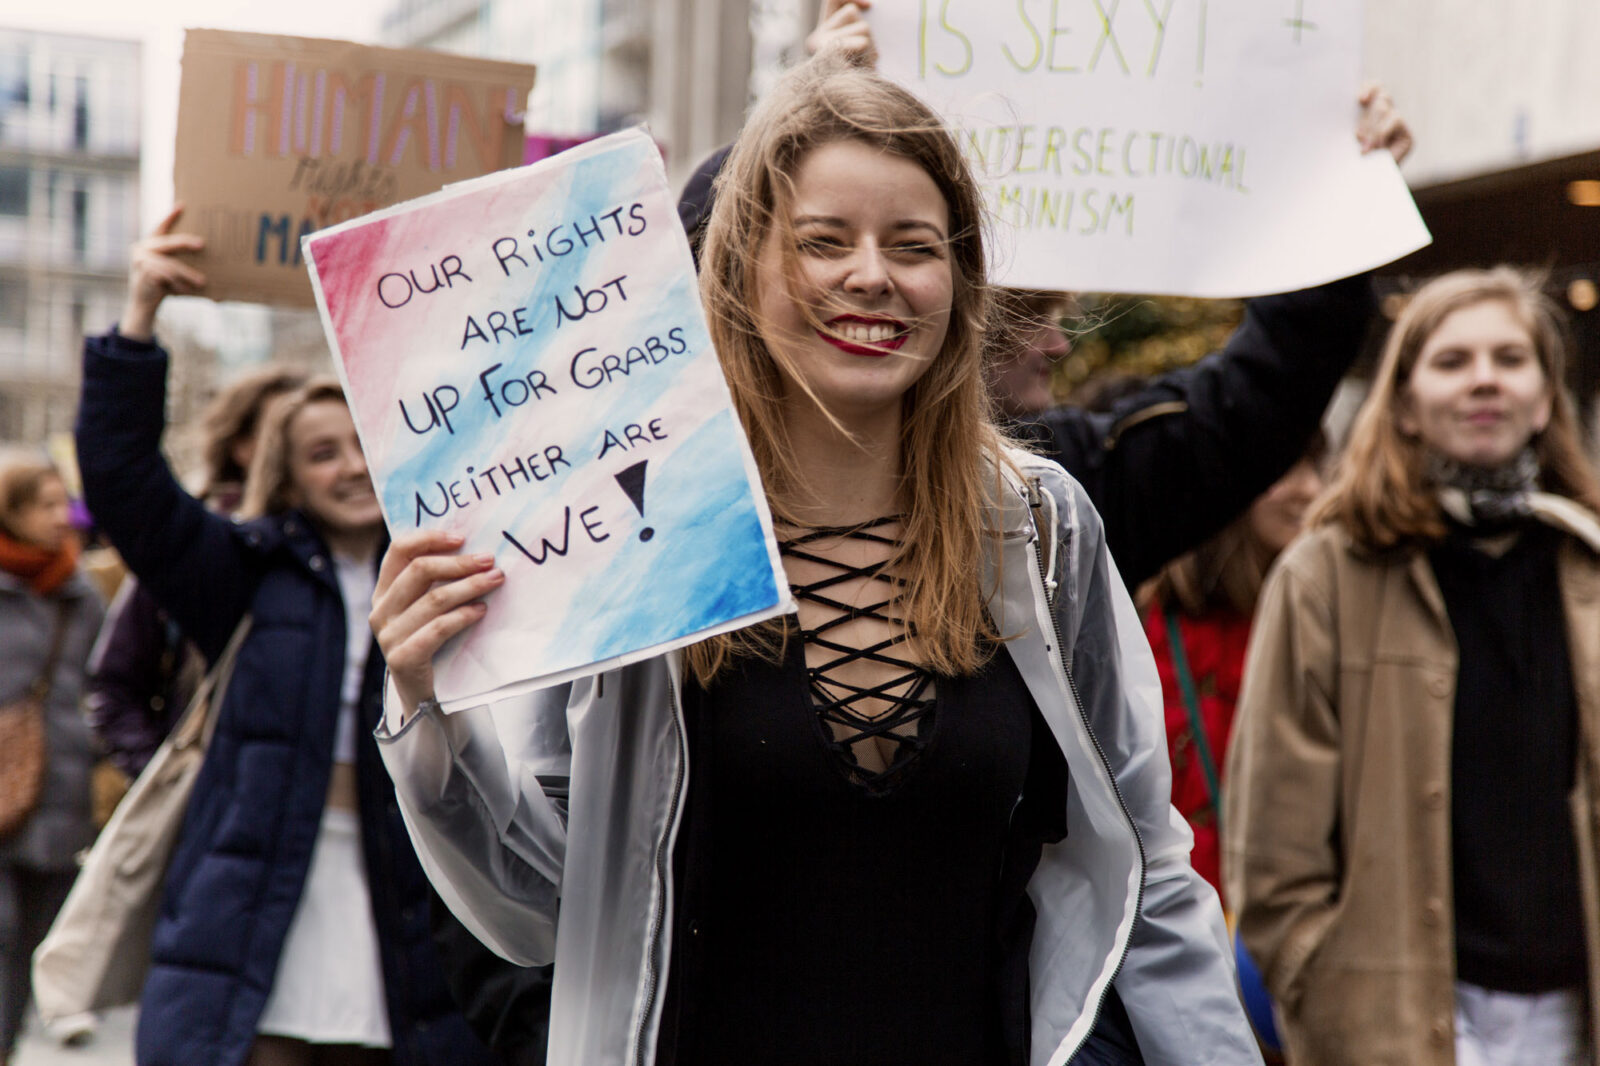 HUMAN
Rights
NOT
MA
OUR RiGHTS
ARE NOT
UP FOR GRABS.
NEiTHER ARE
WE!
IS SEXY! +
INTERSECTIONAL
MINISM